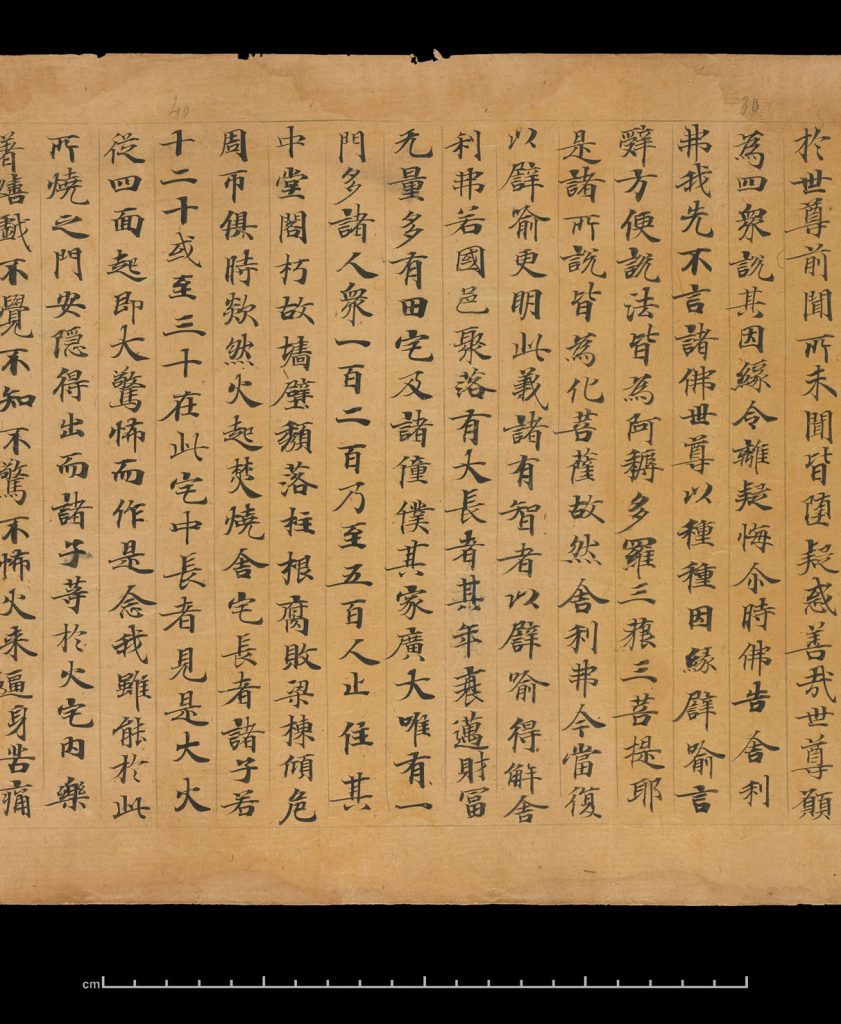 於世尊前聞所未聞皆墮疑惑善哉世尊願
為四衆說其因緣令離疑悔尒時佛告舍利
弗我先不言諸佛世尊以種種因緣譬喻言
辭方便說法皆為阿耨多羅三藐三菩提耶
是諸所說皆為化菩薩故然舍利弗今當復
以譬喻更明此義諸有智者以譬喻得解舍
利弗若國邑聚落有大長者其年衰邁財冨
无量多有田宅及諸僮僕其家廣大唯有一
門多諸人衆一百二百乃至五百人止住其
中堂閣朽故墻壁頹落柱根腐敗梁棟傾危
周帀俱時欻然火起焚燒舍宅長者諸子若
十二十或至三十在此宅中長者見是大火
從四面起即大驚怖而作是念我雖能於此
所燒之門安隱得出而諸子等於火宅内樂
著嬉戲不覺不知不驚不怖火来逼身苦痛
30
40
cm